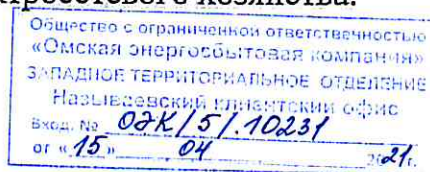 хозяйства.
Общество с ограниченной ответственностью
«Омская энергосбытовая компания»
ЗАПАДНОЕ ТЕРРИТОРИАЛЬНОЕ ОТДЕЛЕНИЕ
Называевский клиентский офис
Вход. №
от «15» 04 2021г.